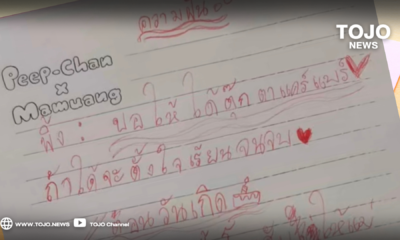 TOJO
NEWS
ความฝัน
Peep-Chan
x
Mamuang
พิ้ง : ขอให้ได้ตุ๊กตาแคร์แบร์
ถ้าได้จะตั้งใจเรียนจนจบ
วันเกิด
WWW.TOJO.NEWS
TOJO Channel